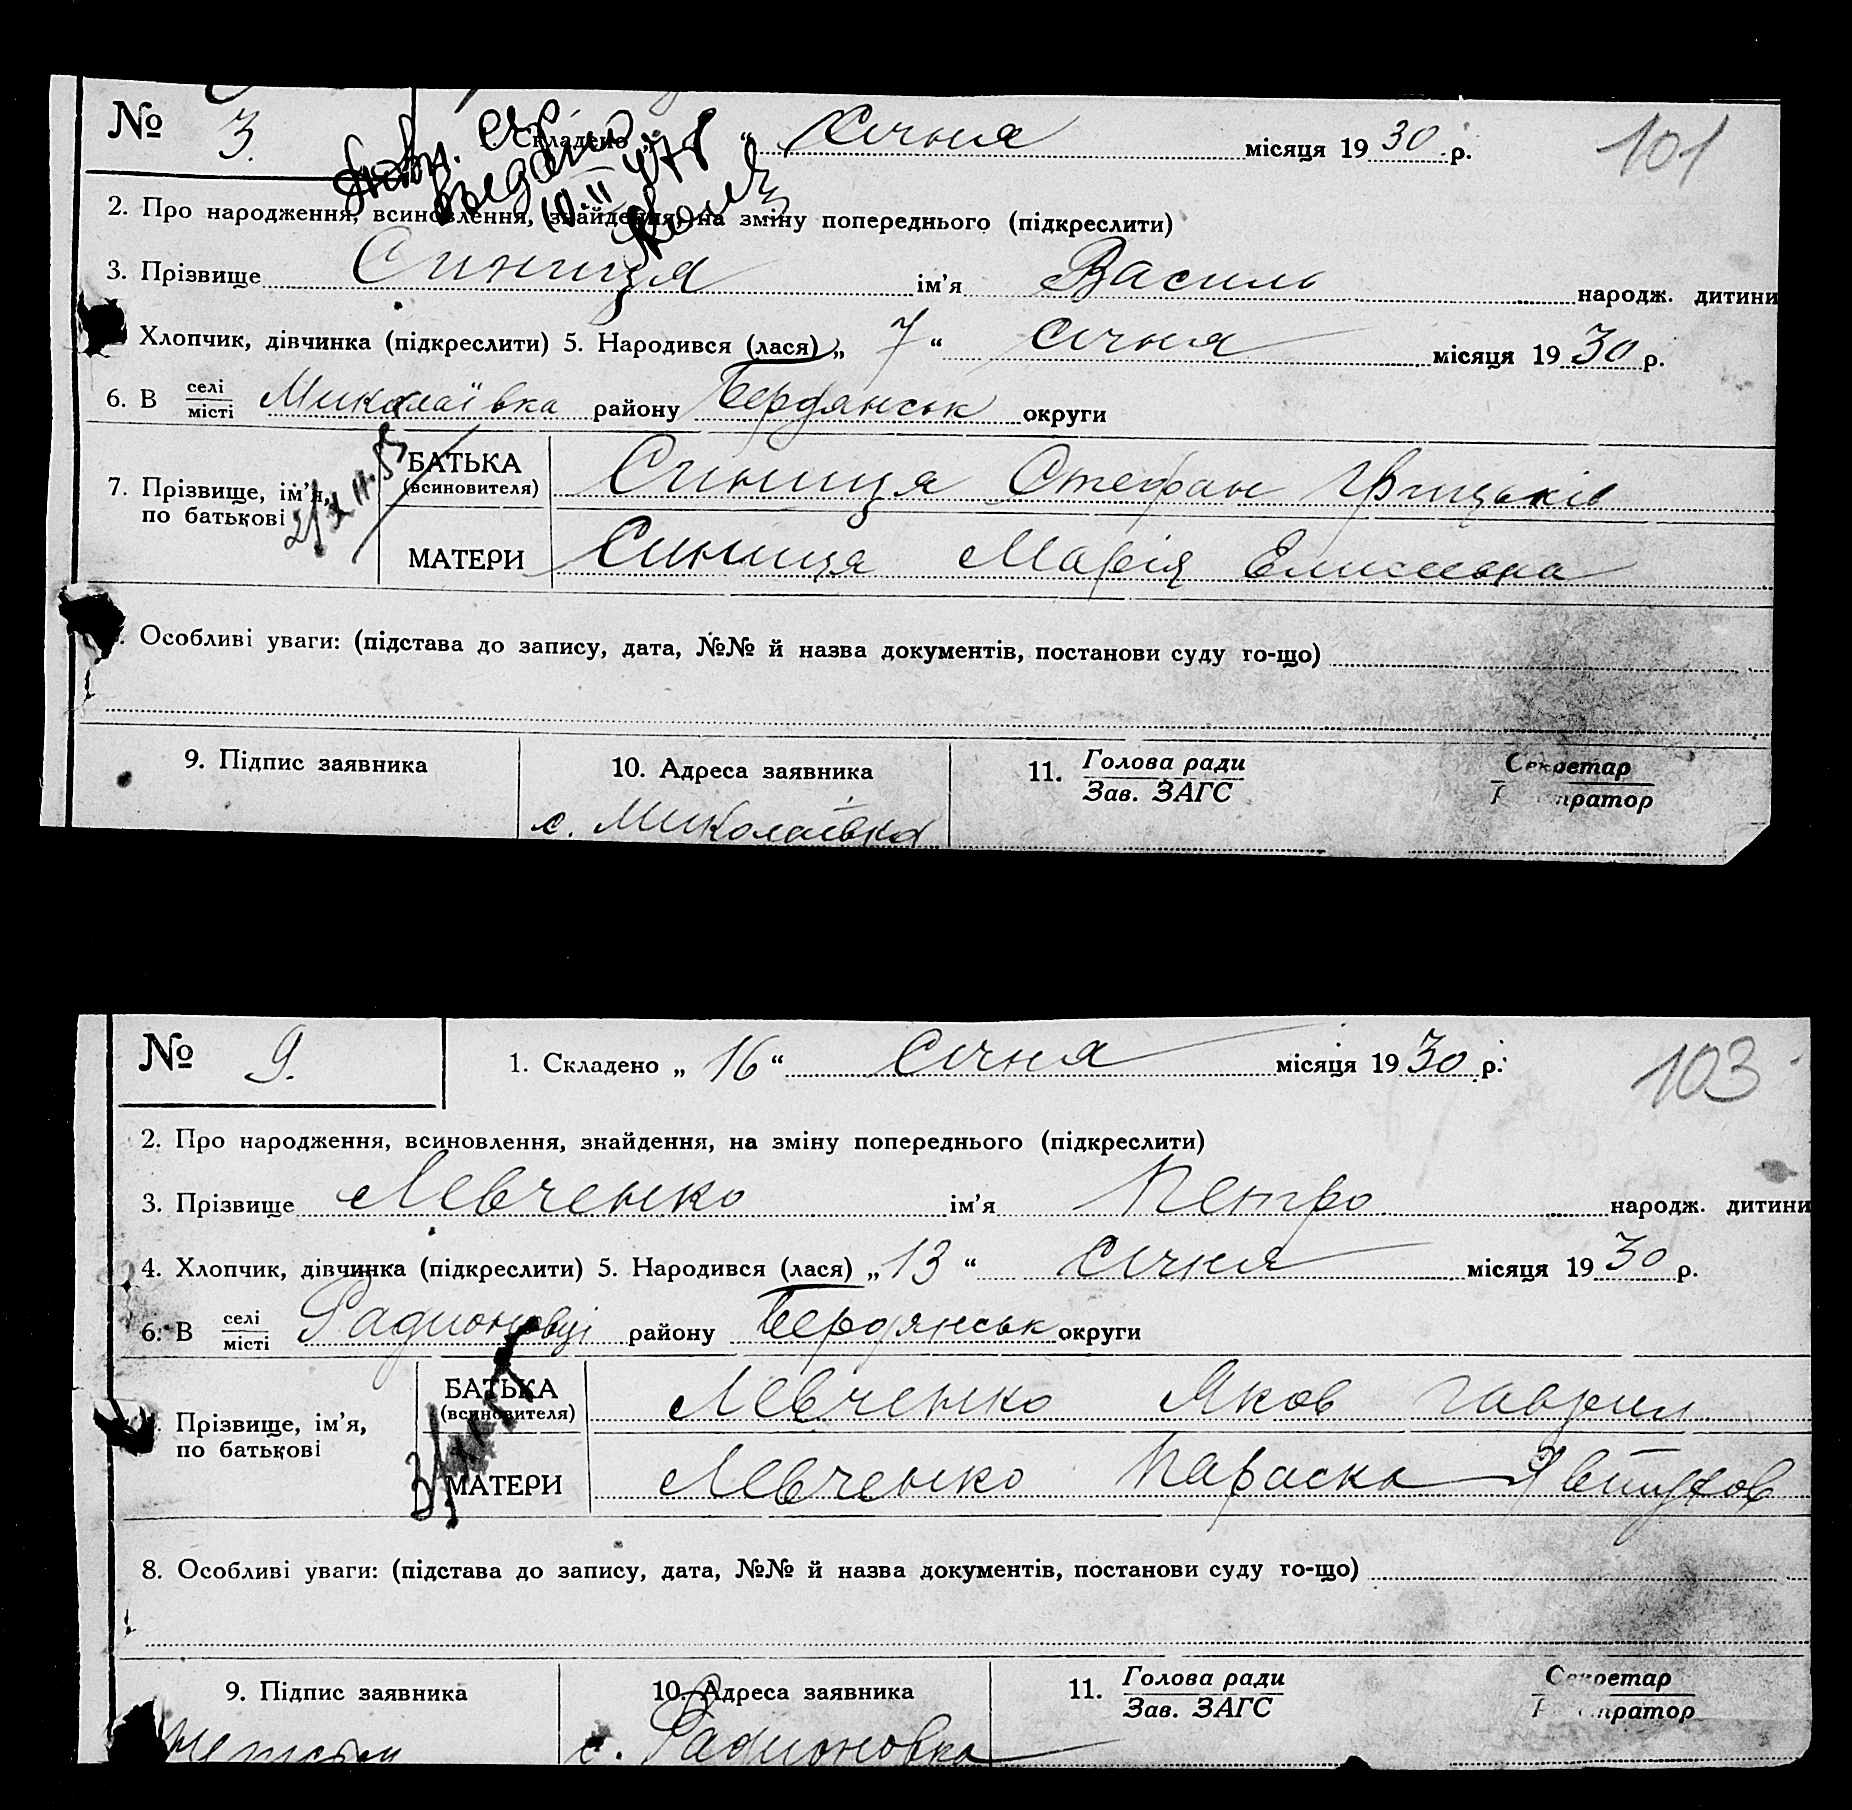 № 3. 1. Складено „ “ Січня місяця 1930 р. 101
Повт. св. видано 10.II 1978
2. Про народження, всиновлення, знайдення, на зміну попереднього (підкреслити)
3. Прізвище Синиця ім'я Василь народж. дитини
Хлопчик, дівчинка (підкреслити) 5. Народився (лася) „ 7 “ січня місяця 1930 р.
6. В селі/місті Миколаївка району Бердянськ округи
7. Прізвище, ім'я, по батькові
БАТЬКА (всиновителя) Синиця Стефан Грицьків
МАТЕРИ Синиця Марія
Особливі уваги: (підстава до запису, дата, №№ й назва документів, постанови суду го-що)
9. Підпис заявника 10. Адреса заявника 11. Голова ради/Зав. ЗАГС Секретар
с. Миколаївка
№ 9. 1. Складено „ 16 “ Січня місяця 1930 р. 103
2. Про народження, всиновлення, знайдення, на зміну попереднього (підкреслити)
3. Прізвище Левченко ім'я Петро народж. дитини
4. Хлопчик, дівчинка (підкреслити) 5. Народився (лася) „ 13 “ січня місяця 1930 р.
6. В селі/місті Радионовці району Бердянськ округи
Прізвище, ім'я, по батькові
БАТЬКА (всиновителя) Левченко Яков Гаврил
МАТЕРИ Левченко Параска Явтухов
8. Особливі уваги: (підстава до запису, дата, №№ й назва документів, постанови суду го-що)
9. Підпис заявника 10. Адреса заявника 11. Голова ради/Зав. ЗАГС Секретар
с. Радионовка